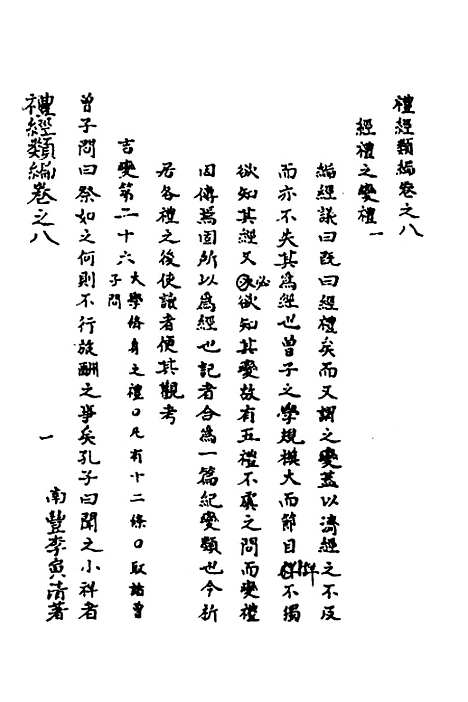 禮經類編卷之八
經禮之變禮一
編經議曰既曰經禮矣而又謂之變蓋以濟經之不及
而亦不失其為經也曾子之學規模大而節目詳不獨
欲知其經又必欲知其變故有五禮不虞之問而變禮
因傳焉固所以為經也記者合為一篇紀變類也今析
居各禮之後使讀者便其觀考
吉變第二十六 大學脩身之禮〇凡有十二條〇取諸曾子問
曾子問曰祭如之何則不行旅酬之事矣孔子曰聞之小祥者
禮經類編卷之八
一
南豐李寅清著